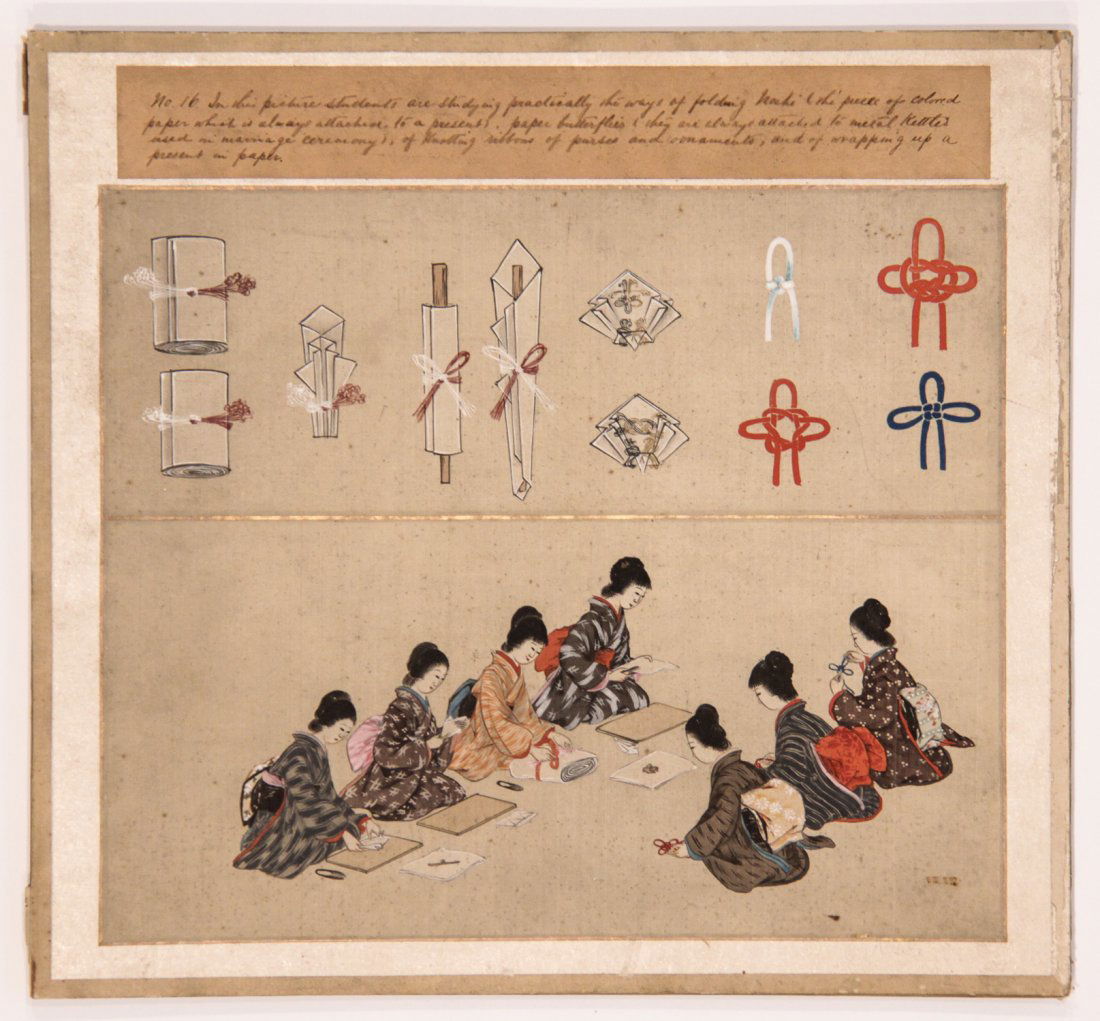 No. 16 In this picture students are studying practically the ways of folding Noshi (the piece of colored
paper which is always attached to a present), paper butterflies (they are always attached to metal Kettles
used in marriage ceremony), of Knotting ribbons of purses and ornaments, and of wrapping up a
present in paper.